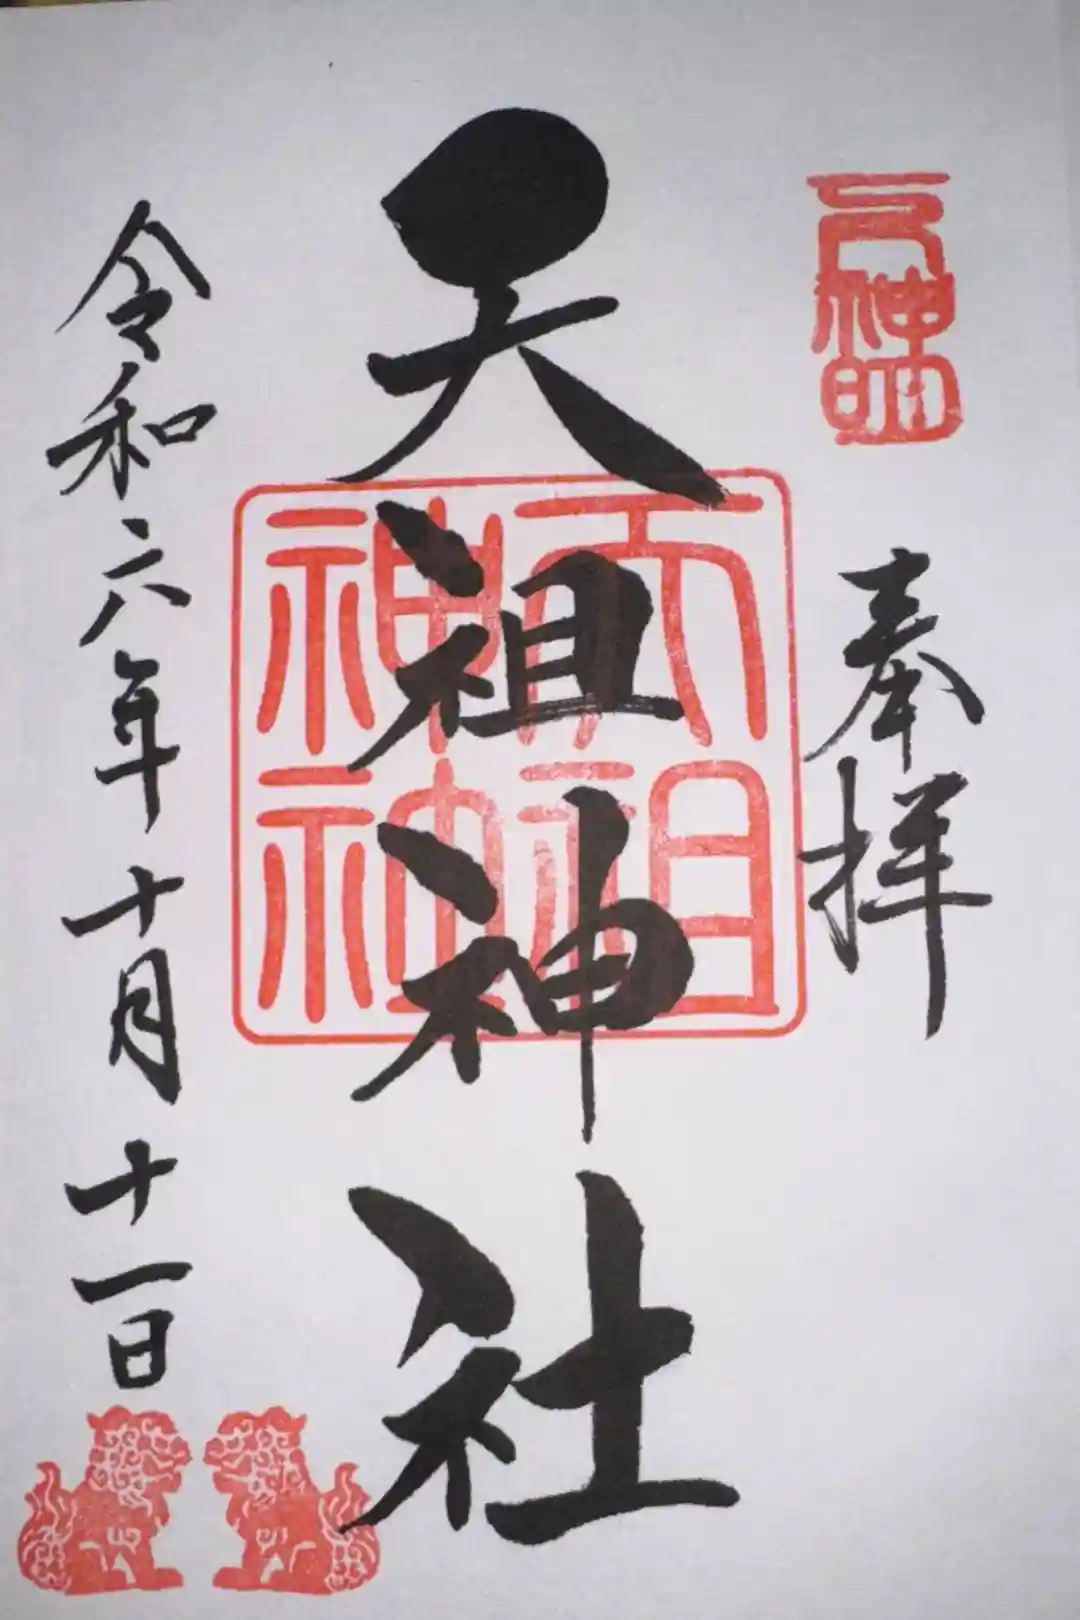 神明
奉拝
天祖神社
天祖
神社
令和六年十月十一日